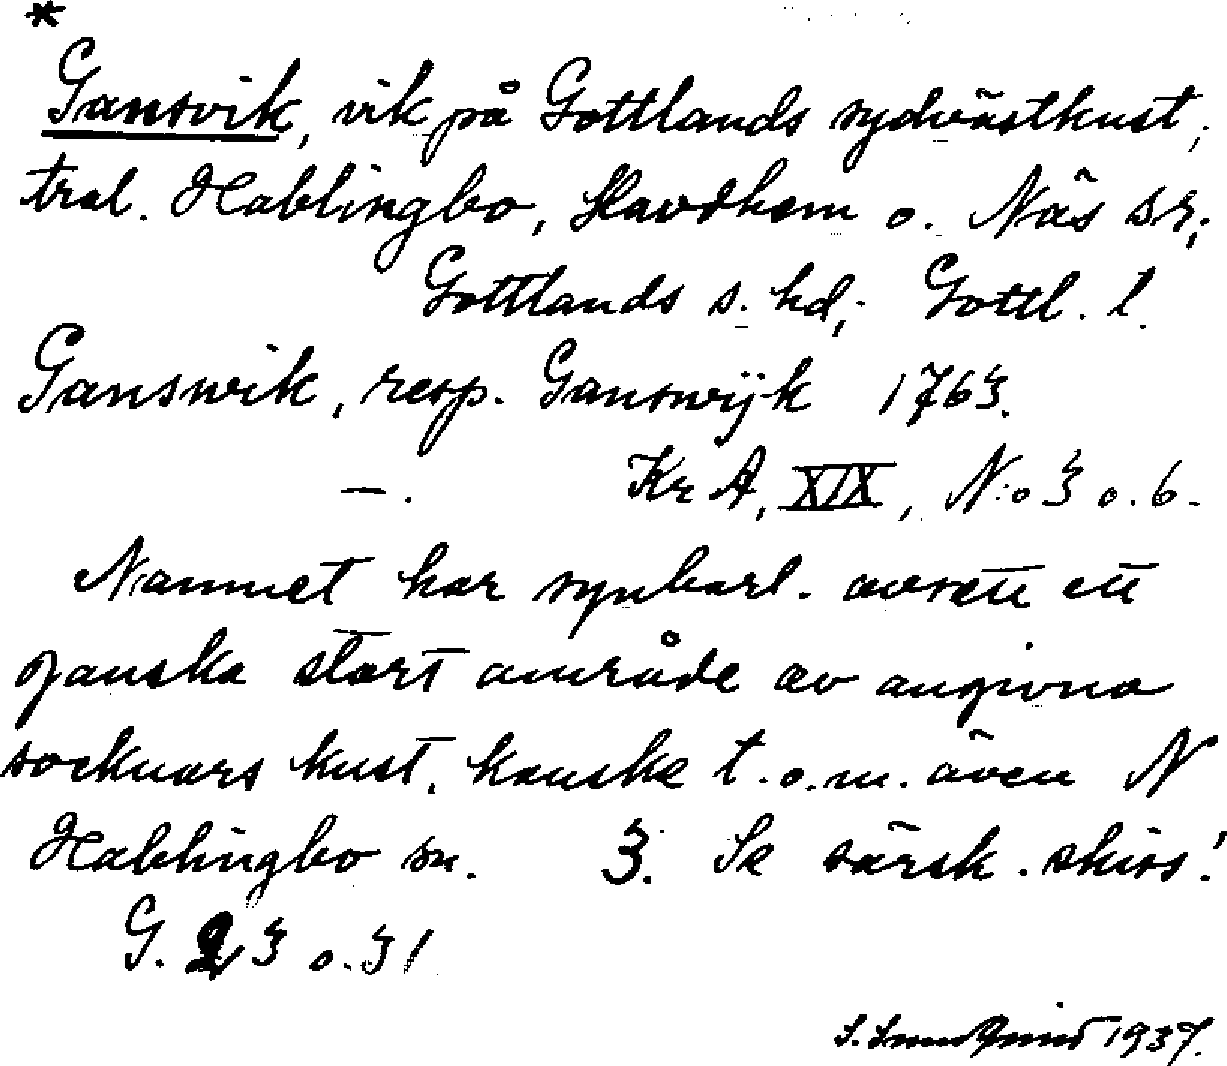 *
Gansvik, vik på Gottlands sydvästkust,
tral. Hablingbo, Havdhem o. Näs sr,
Gottlands s. hd, Gottl. l.
Ganswik, resp. Ganswijk 1763.
— . Kr A, XIX, N:o 3 o. 6.
Namnet har synbarl. avsett ett
ganska stort område av angivna
socknars kust, kanske t.o.m. även N
Hablingbo sn. 3. Se särsk. skiss!
G. 23 o. 31
1937.